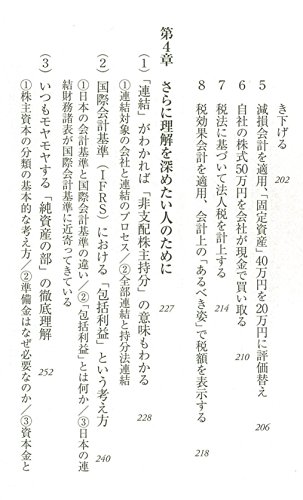 き下げる 202
5 減損会計を適用、「固定資産」40万を20万円に評価替え 206
6 自社の株式50万円を会社が現金で買い取る 210
7 税法に基づいて法人税を計上する 214
8 税効果会計を適用、会計上の「あるべき姿」で税額を表示する 218
第4章 さらに理解を深めたい人のために 227
(1) 「連結」がわかれば「非支配株主持分」の意味もわかる 228
①連結対象の会社と連結のプロセス/②全部連結と持分法連結
(2) 国際会計基準(IFRS)における「包括利益」という考え方 240
①日本の会計基準と国際会計基準の違い/②「包括利益」とは何か/③日本の連
結財務諸表が国際会計基準に近寄ってきている
(3) いつもモヤモヤする「純資産の部」の徹底理解 252
①株主資本の分類の基本的な考え方/②準備金はなぜ必要なのか/③資本金と